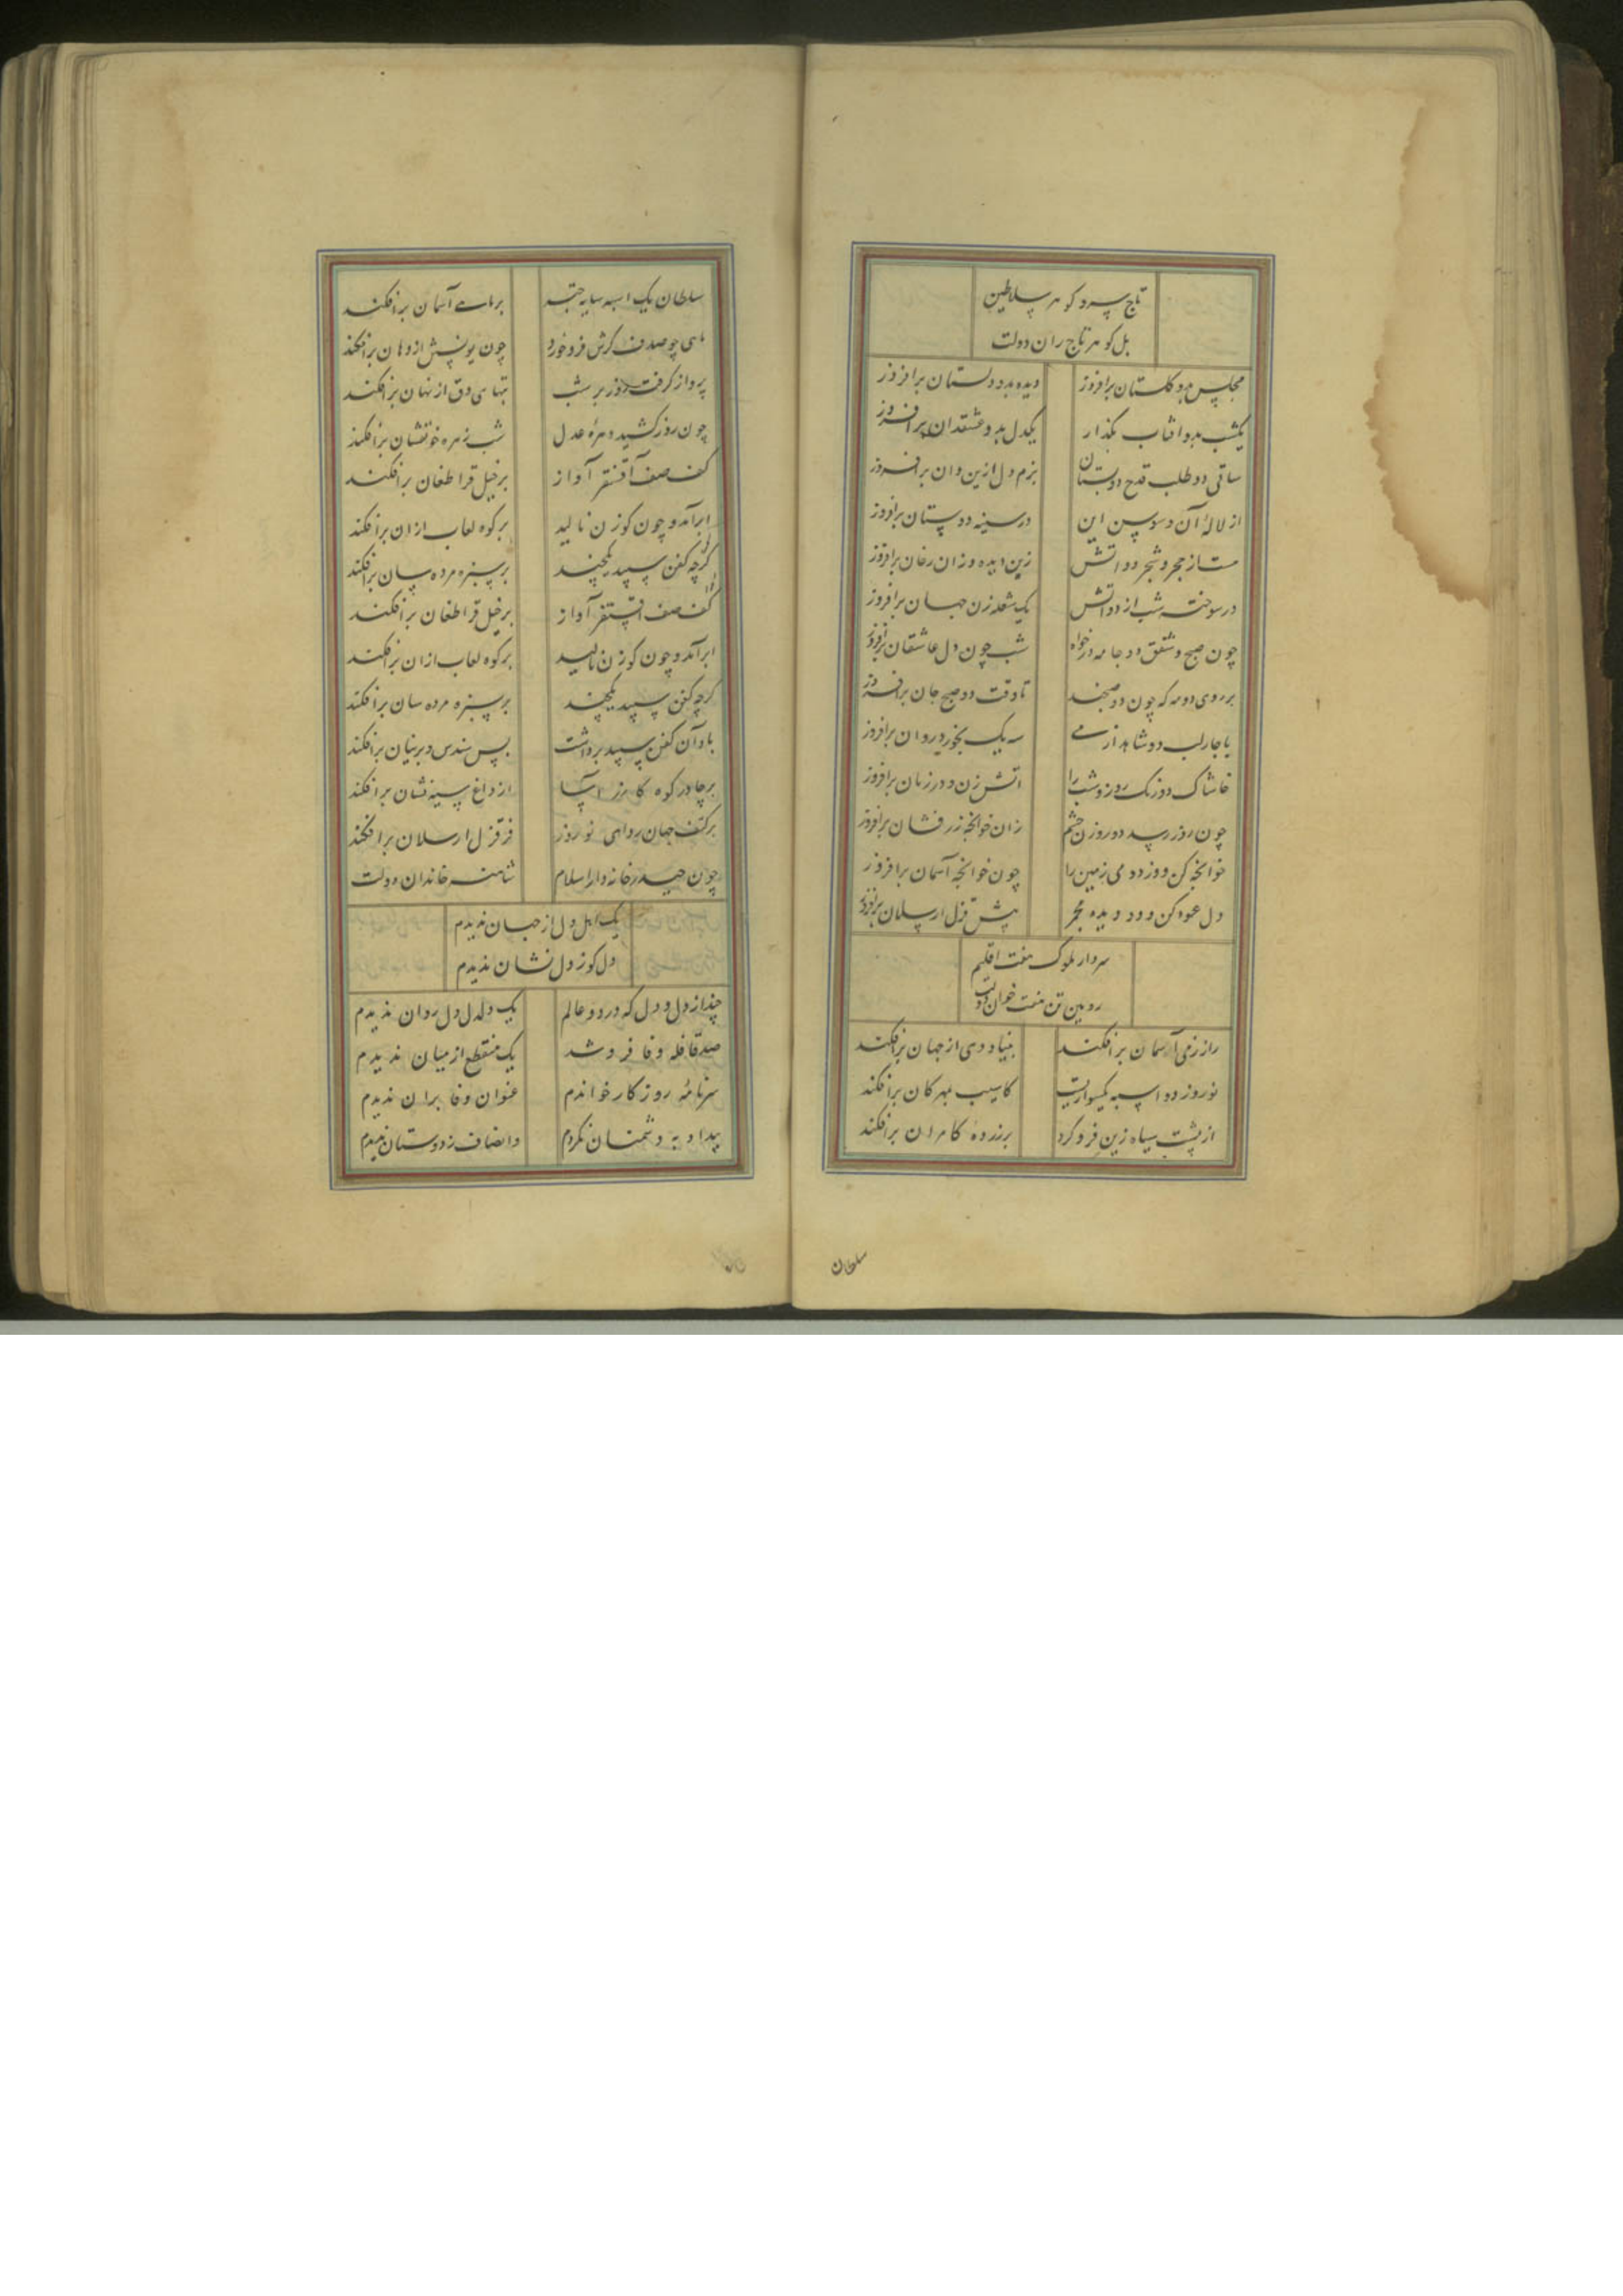 تاج سر و گوهر سلاطین
بل گوهر تاج ران دولت
مجلس بدو گلستان برافروز دیده بدو دلستان برافروز
یکشب بدو افتاب بگذار یکدل بدو عشقدان برافروز
ساقی دو طلب قدح دو بستان بزم دل ازین و ان برافروز
از لاله آن و سوسن این در سینه دو بستان برافروز
مست از حجر و شجر دو اتش زین دیده و زان رخان برافروز
در سوخته شب از دو اتش یک شعله زن جهان برافروز
چون صبح و شفق دو جامه درخواه شب چون دل عاشقان برافروز
بر روی دو مه که چون دو صبحند تا وقت دو صبح جان برافروز
با چار لب دو شاهد از می سه یک بخور و روان برافروز
خاشاک دو رنک روز و شب را اتش زن و در زمان برافروز
چون روز رسد دو روزن چشم زان خوانچه زر فشان برافروز
خوانچه کن و وز دو می زمین را چون خوانچه آسمان برافروز
دل عود کن و دو دیده مجمر پیش قزل ارسلان برافروز
سردار ملوک هفت اقلیم
رویین تن هفت خوان دولت
راز زمی آسمان برافکند بنیاد دی از جهان برافکند
نوروز دو اسبه یکسواریست کاسیب مهرکان برافکند
از پشت سیاه زین فرو کرد بر زرده کامران برافکند
سلطان
سلطان یک اسبه سایه چتر بر ماهی آسمان برافکند
ماهی چو صدف کرش فرو خورد چون یونسش از دهان برافکند
پرواز کرفت روز بر شب تبهای دق از نهان برافکند
چون روز کشید دهره عدل شب زهره خونفشان برافکند
کف صف آقسنقر آواز بر خیل قراطغان برافکند
ابر آمد و چون کوزن نالید بر کوه لعاب ازان برافکند
کرچه کفن سپید یکچند بر سبزه مرده سان برافکند
کف صف اقسنقر آواز بر خیل قراطغان برافکند
ابر آمد و چون کوزن نالید بر کوه لعاب ازان برافکند
کرچه کفن سپید یکچند بر سبزه مرده سان برافکند
باد آن کفن سپید برداشت پس سندس و پرنیان برافکند
بر چادر کوه کازر آسا از داغ سیه نشان برافکند
بر کتف جهان ردای نوروز فر قزل ارسلان برافکند
چون حیدر خانه دار اسلام شاهنشه خاندان دولت
یک اهل دل از جهان ندیدم
دل کو ز دل نشان ندیدم
چند از دل و دل که در دو عالم یک دلدل دل روان ندیدم
صد قافله وفا فرو شد یک منقطع از میان ندیدم
سر نامه روزکار خواندم عنوان وفا بران ندیدم
بیداد به دشمنان نکردم و انصاف ز دوستان ندیدم